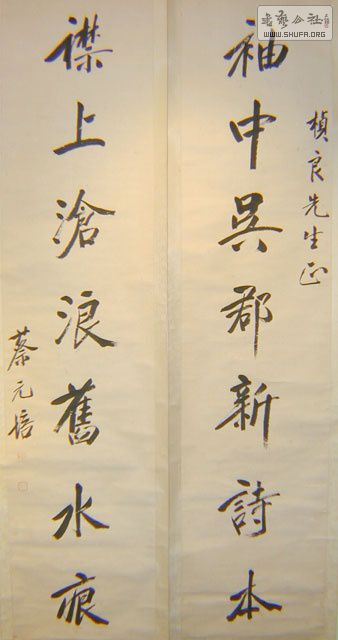 書藝公社
WWW.SHUFA.ORG
楨良先生正
袖中吳郡新詩本
襟上滄浪舊水痕
蔡元培